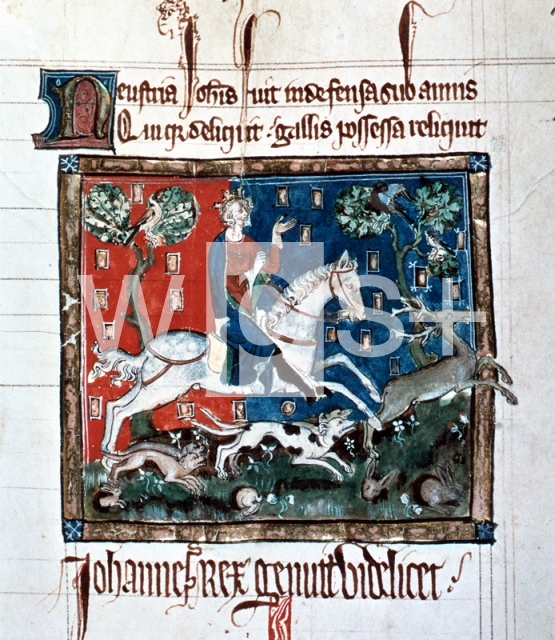 Neustria Johis fuit indefensa sub annis
Quiqꝫ deliquit gallis possessa reliquit
Johannes Rex genuit videlicet